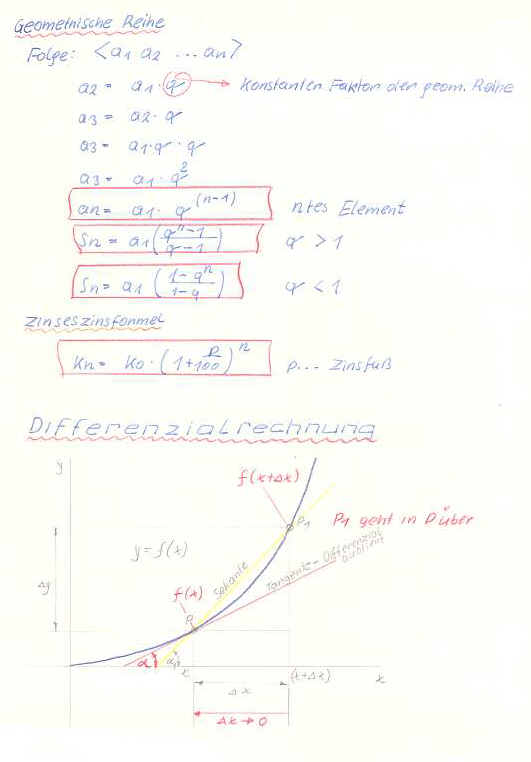 Geometrische Reihe
Folge: <a1 a2 ... an>
a2 = a1 · q → Konstanter Faktor der geom. Reihe
a3 = a2 · q
a3 = a1 · q · q
a3 = a1 · q^2
an = a1 · q^(n-1) ntes Element
Sn = a1 (q^n-1 / q-1) q > 1
Sn = a1 (1-q^n / 1-q) q < 1
Zinseszinsformel
Kn = K0 · (1+p/100)^n p... Zinsfuß
Differenzialrechnung
y
f(x+Δx)
P1
P1 geht in P über
y=f(x)
Sekante
Tangente - Differenzial
Δy
f(x)
P
α
x
(x+Δx)
x
Δx
Δx→0